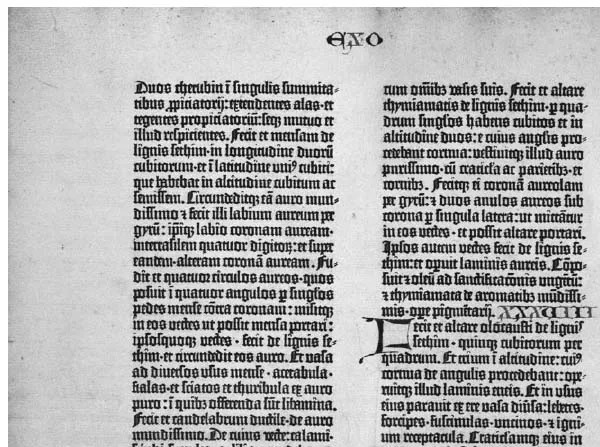 EXO
Duos cherubin ī singulis summita-
tibus ꝓpiciatorij: extendentes alas · et
tegentes propiciatoriū: seqꝫ mutuo et
illud respicientes. Fecit et mensam de
lignis sethim · in longitudine duorū
cubitorum · et ī latitudine uniꝰ cubiti:
que habebat in altitudine cubitum ac
semissem. Circumdeditqꝫ eā auro mun-
dissimo ⁊ fecit illi labium aureum per
gyrū: ip̄iqꝫ labio coronam auream ·
interrasilem quatuor digitoꝝ: et super
eandem · alteram coronā auream. Fu-
dit et quatuor circulos aureos · quos
posuit ī quatuor angulos ꝑ singulos
pedes mense cōtra coronam: misitqꝫ
in eos vectes ut possit mensa portari:
ipsosquoqꝫ vectes · fecit de lignis se-
thim · et circumdedit eos auro. Et vasa
ad diversos usus mense · acetabula ·
fialas · et sciatos et thuribula ex auro
puro: ī quibꝫ offerenda sūt libamina.
Fecit et candelabrum ductile · de auro
mundissimo. De cuius vecte: calami-
rum om̄ibꝫ vasis suis. Fecit et altare
thymiamatis de lignis sethim · ꝑ qua-
drum singulos habens cubitos et in
altitudine duos: e cuius angulis pro-
cedebant cornua: vestivitqꝫ illud auro
purissimo · cū craticula ac parietibꝫ · et
cornibꝫ. Fecitqꝫ ei coronā aureolam
per gyrū: ⁊ duos anulos aureos sub
corona ꝑ singula latera: ut mittantur
in eos vectes · et possit altare portari.
Ipsos autem vectes fecit de lignis se-
thim: et operuit laminis aureis. Cōpo-
suit ⁊ oleū ad sanctificatōnis ungētū:
⁊ thymiamata de aromatibꝫ mūdissi-
mis · ope pigmētarij. XXXVIII
Fecit et altare olocausti de lignis
sethim · quinqꝫ cubitorum per
quadrum. Et trium ī altitudine: cuiꝰ
cornua de angulis procedebant: ope-
ruitqꝫ illud laminis eneis. Et in usus
eius paravit ex ere vasa dīversa: lebetes ·
forcipes · fuscinulas · uncinos · ⁊ igni-
um receptacula. Craticulamqꝫ eius in